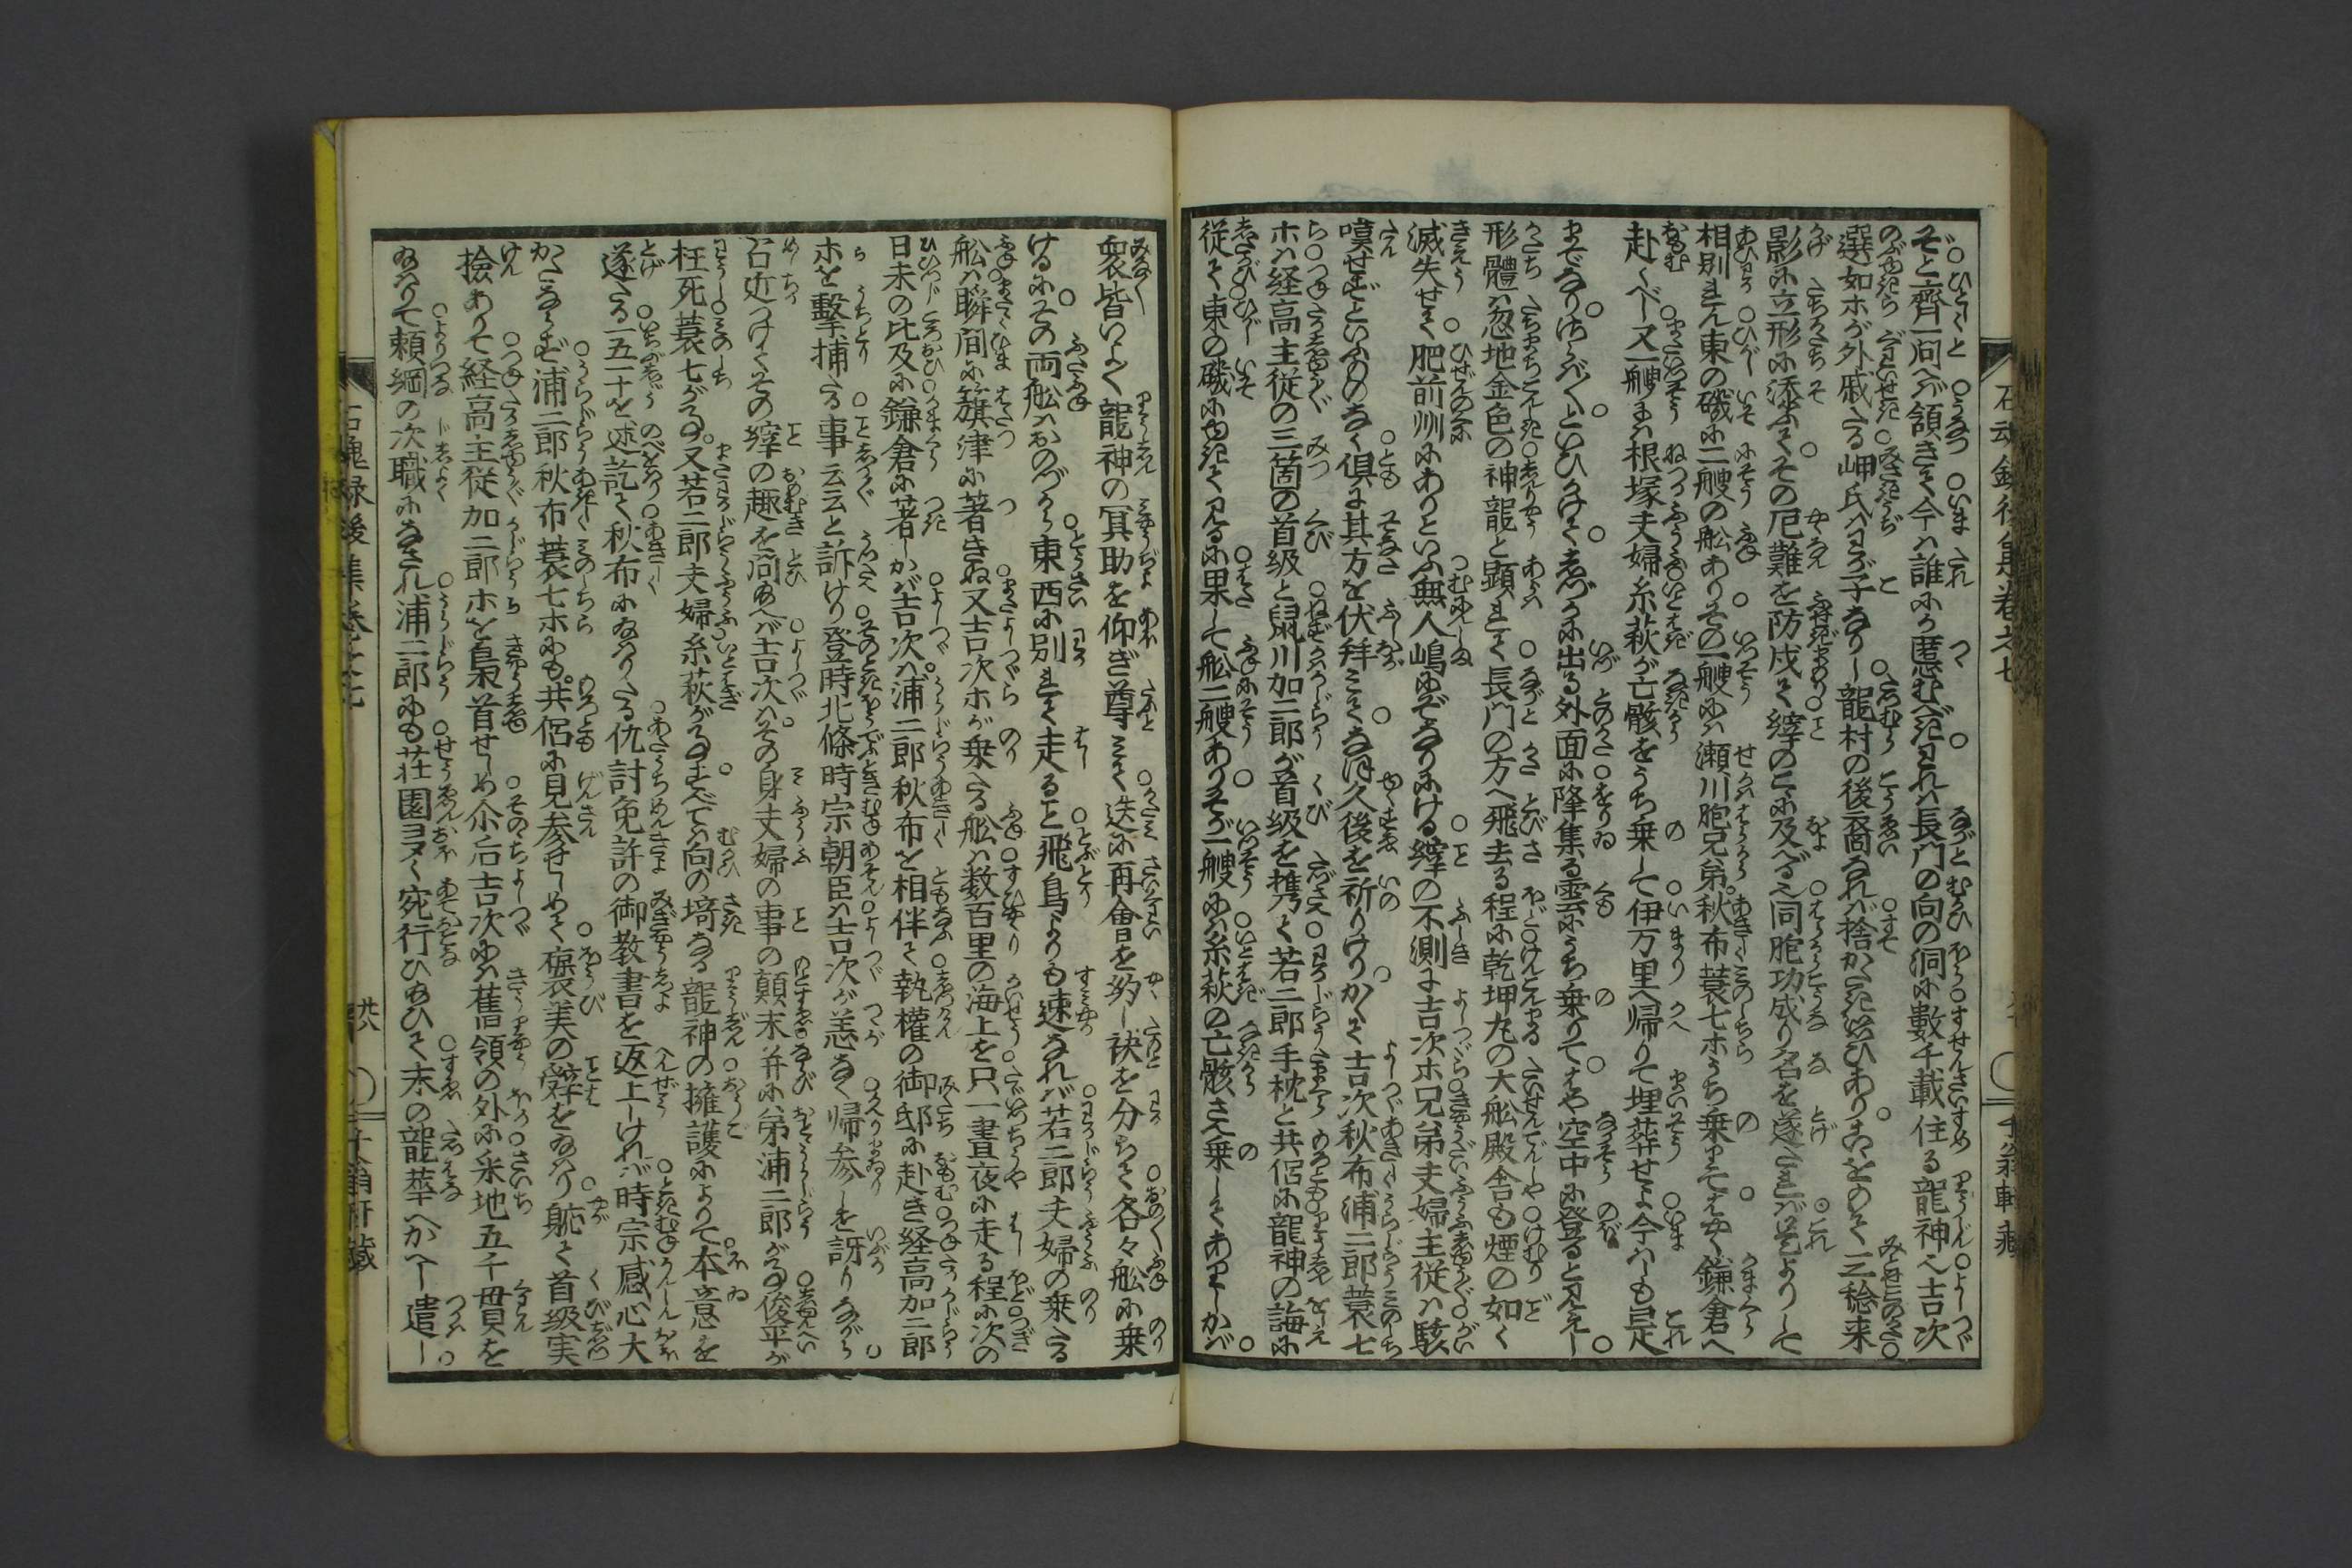 ぞと齊一問へバ領きて今ハ誰にか匿むべきわれハ長門の向の洞に數千載住る龍神へ吉次
選如ホが外戚たる岬氏ハわが子なりし龍村の後裔なれバ捨がたき思ひありさるをのて三稔来
影に立形に添ふてその厄難を防戍て縡のこゝに及べる同胞功成り名を遂たれバ是よりして
相別れん東の磯に二艘の舩ありその一艘にハ瀬川胞兄弟秋布蓑七ホうち乗りてはやく鎌倉へ
赴くべし又一艘にハ根塚夫婦糸萩が亡骸をうち乗して伊万里へ帰りて埋葬せよ今ハしも是
までなりさらバ〳〵といひかけて忽ちに出る外面に降集る雲にうち乗りてはや空中に登ると見えし
形體ハ忽地金色の神龍と顕れて長門の方へ飛去る程に乾坤丸の大舩殿舎も煙の如く
滅失せて肥前州にありといふ無人嶋にぞなりにける縡の不測に吉次ホ兄弟夫婦主従ハ駭
嘆せずといふものなく俱に其方を伏拜みてなほ久後を祈りけりかくて吉次秋布浦二郎蓑七
ホハ経高主従の三箇の首級と鼠川加二郎が首級を携て若二郎手枕と共侶に龍神の誨に
従て東の磯にゆきて見るに果して舩二艘ありその一艘にハ糸萩の亡骸さへ乗してありしかバ
衆皆いよゝ龍神の冥助を仰ぎ尊みて迭に再會を約し袂を分ちて各々舩に乗
けるにその両舩おのづから東西に別れて走ること飛鳥よりも速なれバ若二郎夫婦の乗たる
舩ハ瞬間に簱津に著きぬ又吉次ホが乗たる舩ハ数百里の海上を只一晝夜に走る程に次の
日未の比及に鎌倉に著しかバ吉次ハ浦二郎秋布を相伴て執權の御邸に赴き経高加二郎
ホを擊捕たる事云云と訴けり登時北條時宗朝臣ハ吉次が恙なく帰参しを訝りながら
召近つけてその縡の趣を問あへバ吉次ハその身夫婦の事の顛末并に弟浦二郎が事俊平が
枉死蓑七が事又若二郎夫婦糸萩が事すべてハ向の埼なる龍神の擁護によりて本意を
遂たる一五一十を述訖て秋布に給りたる仇討免許の御教書を返上しけれバ時宗感心大
かたならず浦二郎秋布蓑七ホにも共侶に見参せしめて褒美の辞を給り軈て首級実
撿ありて経高主従加二郎ホを梟首せしめ尒后吉次にハ舊領の外に釆地五千貫を
給りて頼綱の次職になされ浦二郎にも荘園ヨヌく宛行ひあひて末の龍華へかへし遣し
石魂録後集巻之七
廿八